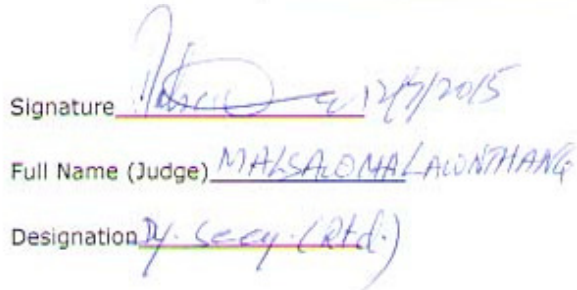 Signature 12/7/2015
Full Name (Judge) MALSAWMA LAWNTHANG
Designation Dy. Secy. (Rtd.)